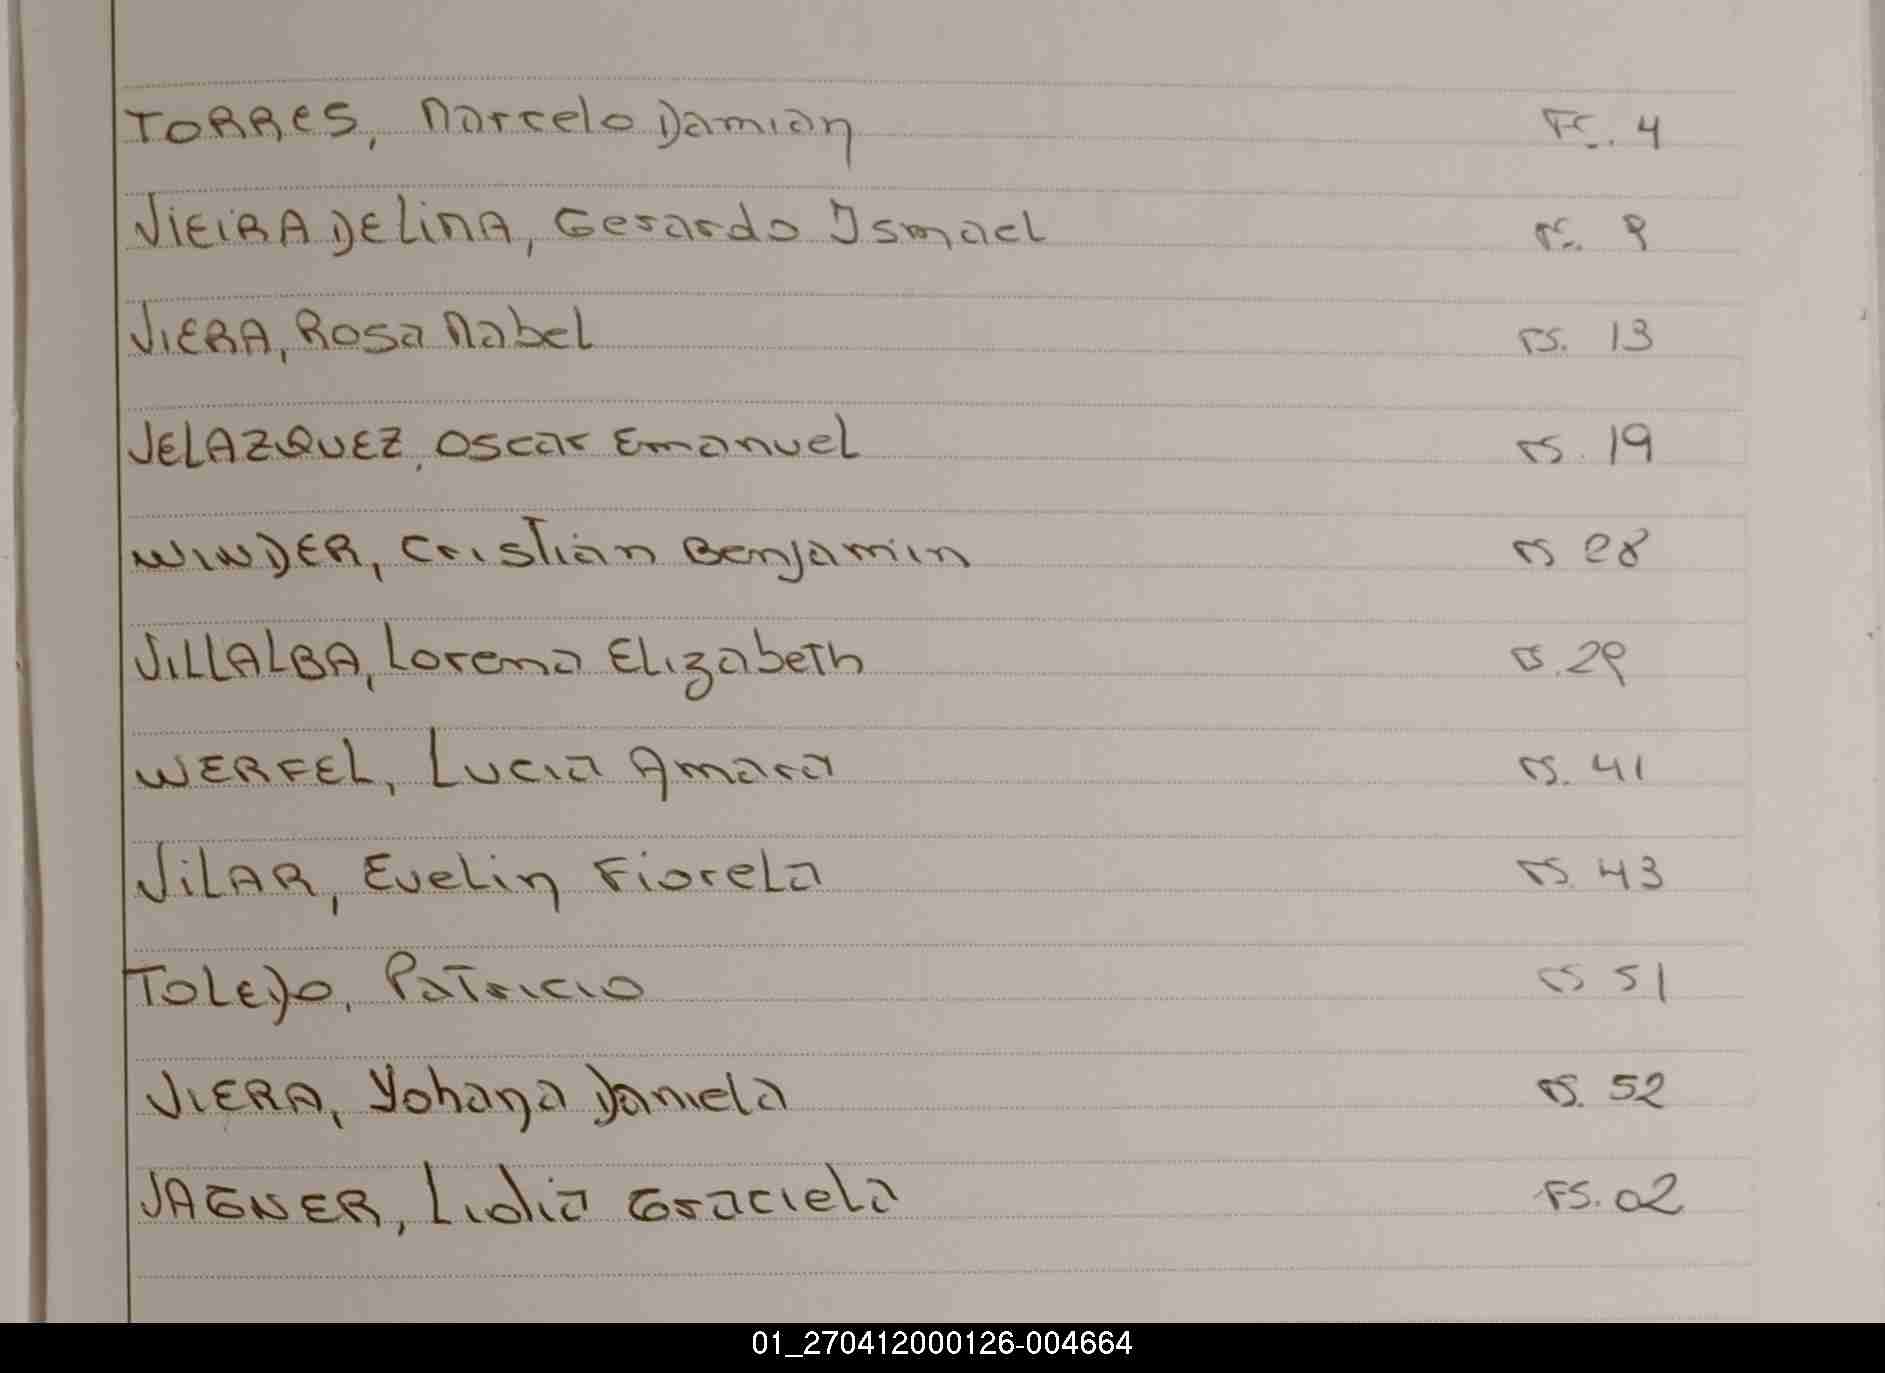 TORRES, Marcelo Damian FS. 4
VIEIRA DELIMA, Gerardo Ismael FS. 9
VIERA, Rosa Mabel FS. 13
VELAZQUEZ, Oscar Emanuel FS. 19
WINDER, Cristian Benjamin FS 28
VILLALBA, Lorena Elizabeth FS. 29
WERFEL, Lucia Amara FS. 41
VILAR, Evelin Fiorela FS. 43
TOLEDO, Patricio FS 51
VIERA, Yohana Daniela FS. 52
VAGNER, Lidia Graciela FS. 02
01_270412000126-004664